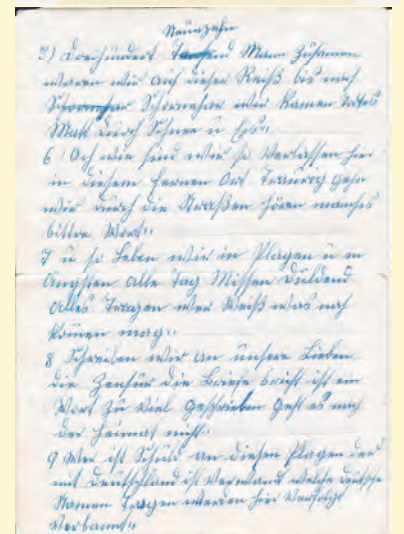 Neunzehn
5) Dreihundert Mann Zusamen
waren wir auf dieser Reiß bis nach
wir kamen todes
Matt durch Schnee u Eis"
6) Ach wie sind wir so Verlassen hier
in diesem fernen Ort Traurig gehn
wir durch die Straßen hören manches
bittre Wort"
7 u so Leben wir in Plagen u in
Ängsten alle Tag Missen duldend
alles Tragen wer Weiß was noch
komen mag"
8 Schreiben wir an unsere Lieben
die Zensur die Briefe bricht ist ein
Wort zu viel geschrieben geht es nach
der Heimat nicht"
9 Wer ist Schuld an diesen Plagen der
mit Deutschland ist Verwand welche deutsche
Namen Tragen werden hier Verfolgt
Verbannt"